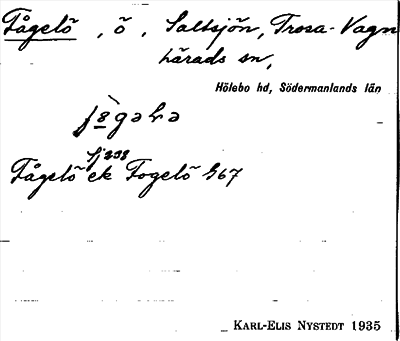 Fågelö, ö, Saltsjön, Trosa-Vagn
härads sn,
Hölebo hd, Södermanlands län
Fågelö ek Fogelö G67
KARL-ELIS NYSTEDT 1935